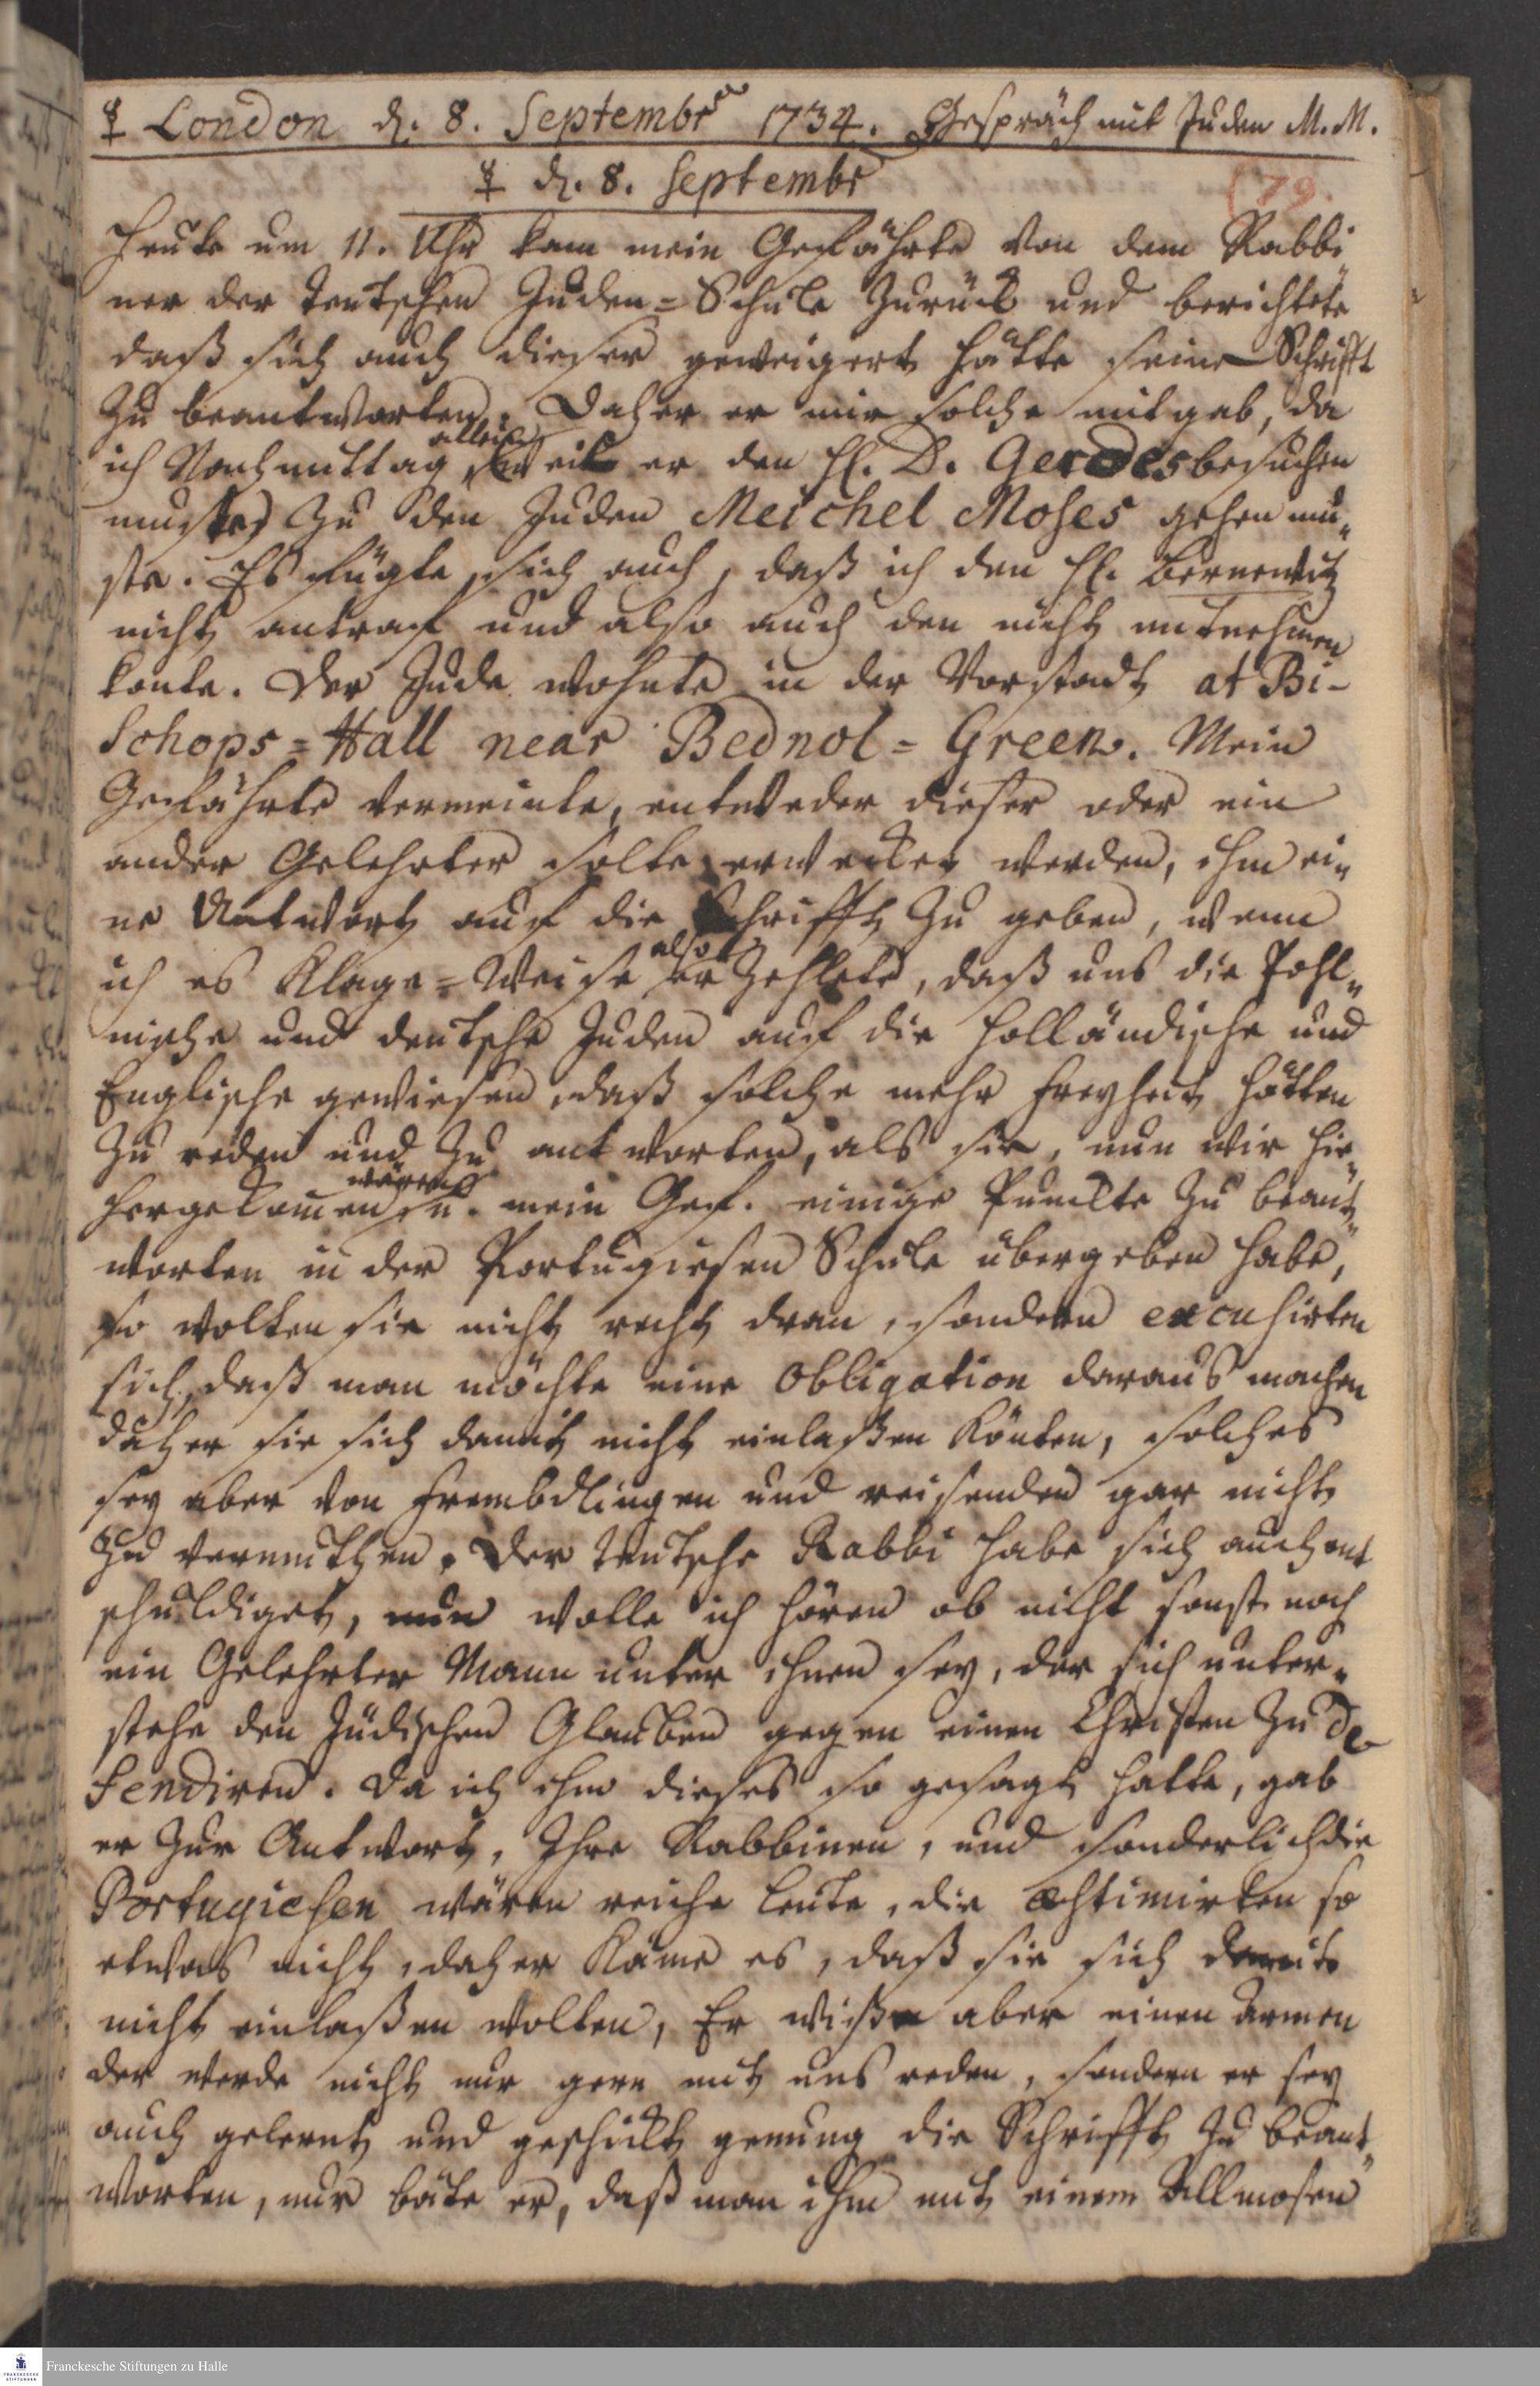 ☿ London d. 8. Septembr 1734. Gespräch mit Juden M. M.
☿ d. 8. Septembr
(79.
Heute um 11. Uhr kam mein Gefährte von dem Rabbi
ner der teutschen Juden-Schule zurück und berichtete
daß sich auch dieser geweigert hätte seine Schrifft
zu beantworten. Daher er mir solche mitgab, da
allein
ich Nachmittag weil er den H. D. Gerdes besuchen
muste zu den Juden Meichel Moses gehen mu„
ste. Es fügte sich auch, daß ich den H. Bernewitz
nicht antraf und also auch den nicht mitnehmen
konte. Der Jude wohnte in der Vorstadt at Bi-
schops-Hall near Bednol-Green. Mein
Gefährte vermeinte, entweder dieser oder ein
ander Gelehrter solte erwecket werden, ihm ei„
ne Antwort auf die Schrifft zu geben, wenn
also
ich es Klage-Weise erzehlete, daß uns die Pohl„
nische und deutsche Juden auf die Holländische und
Englische gewiesen, daß solche mehr Freyheit hätten
zu reden und zu antworten, als sie, nun wir hie„
wären
hergekomen u. mein Gef. einige Puncte zu beant„
worten in der Portugiesen Schule übergeben habe,
so wolten sie nicht recht dran, sondern excusirten
sich, daß man möchte eine Obligation daraus machen
daher sie sich damit nicht einlaßen könten, solches
sey aber von Frembdlingen und reisenden gar nicht
zu vermuthen. Der teutsche Rabbi habe sich auch ent
schuldiget, nun wolle ich hören ob nicht sonst noch
ein Gelehrter Mann unter ihnen sey, der sich unter„
stehe den Jüdischen Glauben gegen einen Christen zu de
fendiren. Da ich ihm dieses so gesagt hatte, gab
er zur Antwort, Ihre Rabbinen, und sonderlich die
Portugiesen wären reiche Leute, die æstimirten so
etwas nicht, daher käme es, daß sie sich damit
nicht einlaßen wolten, Er wiße aber einen armen
der werde nicht nur gern mit uns reden, sondern er sey
auch gelernt und geschickt genung die Schrifft zu beant„
worten, nur bäte er, daß man ihm mit einem Allmosen
Franckesche Stiftungen zu Halle